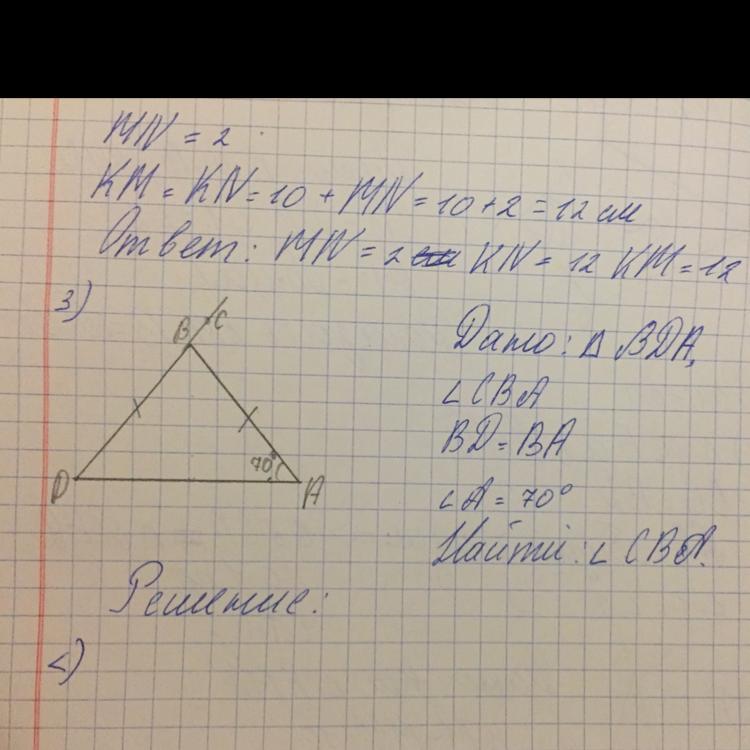 MN = 2
KM = KN = 10 + MN = 10 + 2 = 12 см
Ответ: MN = 2 KN = 12 KM = 12
3)
B C
D
A
70°
Дано: Δ BDA,
∠CBA
BD = BA
∠A = 70°
Найти: ∠CBA.
Решение: